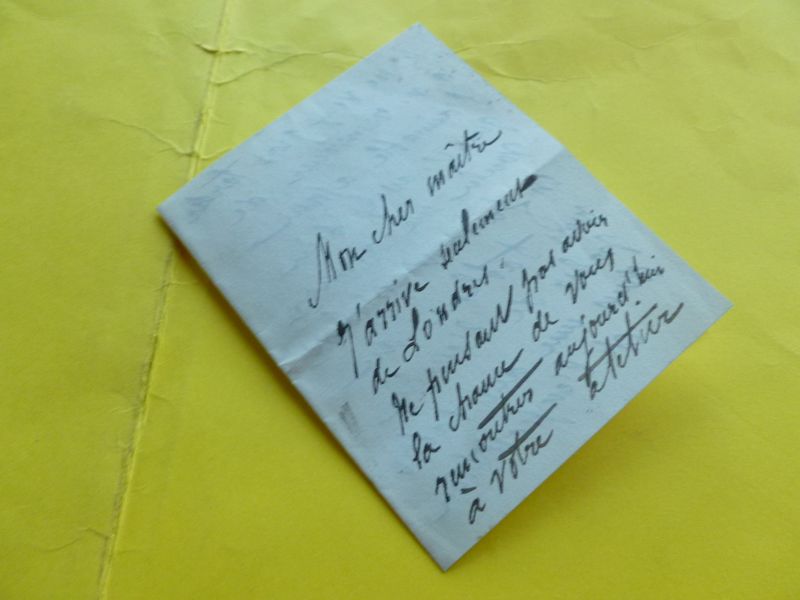 Mon cher maître
J'arrive seulement
de Londres.
Ne pensant pas avoir
la chance de vous
rencontrer aujourd'hui
à votre atelier